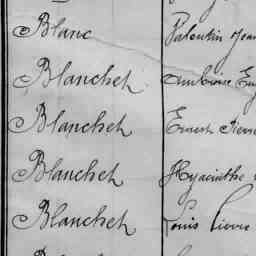 Blanc Palentin Jean
Blanchet Ambroise Eug
Blanchet Ernest Pierre
Blanchet Hyacinthe
Blanchet Louis Pierre